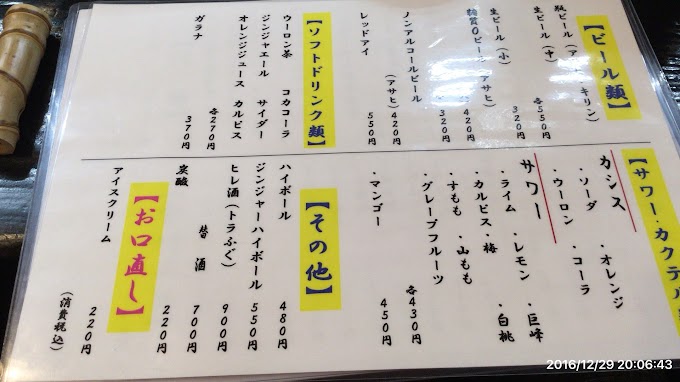 【ビール類】
瓶ビール（ア　キリン）
生ビール（中）
各550円
生ビール（小）
320円
320円
糖質0ビー　アサヒ）
420円
ノンアルコールビール
（アサヒ）420円
レッドアイ
550円
【ソフトドリンク類】
ウーロン茶　コカコーラ
ジンジャエール　サイダー
オレンジジュース　カルピス
各270円
ガラナ
370円
【サワー・カクテル
カシス
・ソーダ　・オレンジ
・ウーロン　・コーラ
サワー
・ライム　・レモン　・巨峰
・カルピス・梅　・白桃
・すもも　・山もも
・グレープフルーツ
各430円
・マンゴー
450円
【その他】
ハイボール
480円
ジンジャーハイボール
550円
ヒレ酒（トラふぐ）
900円
替酒
700円
炭酸
220円
【お口直し】
アイスクリーム
220円
（消費税込）
2016/12/29 20:06:43